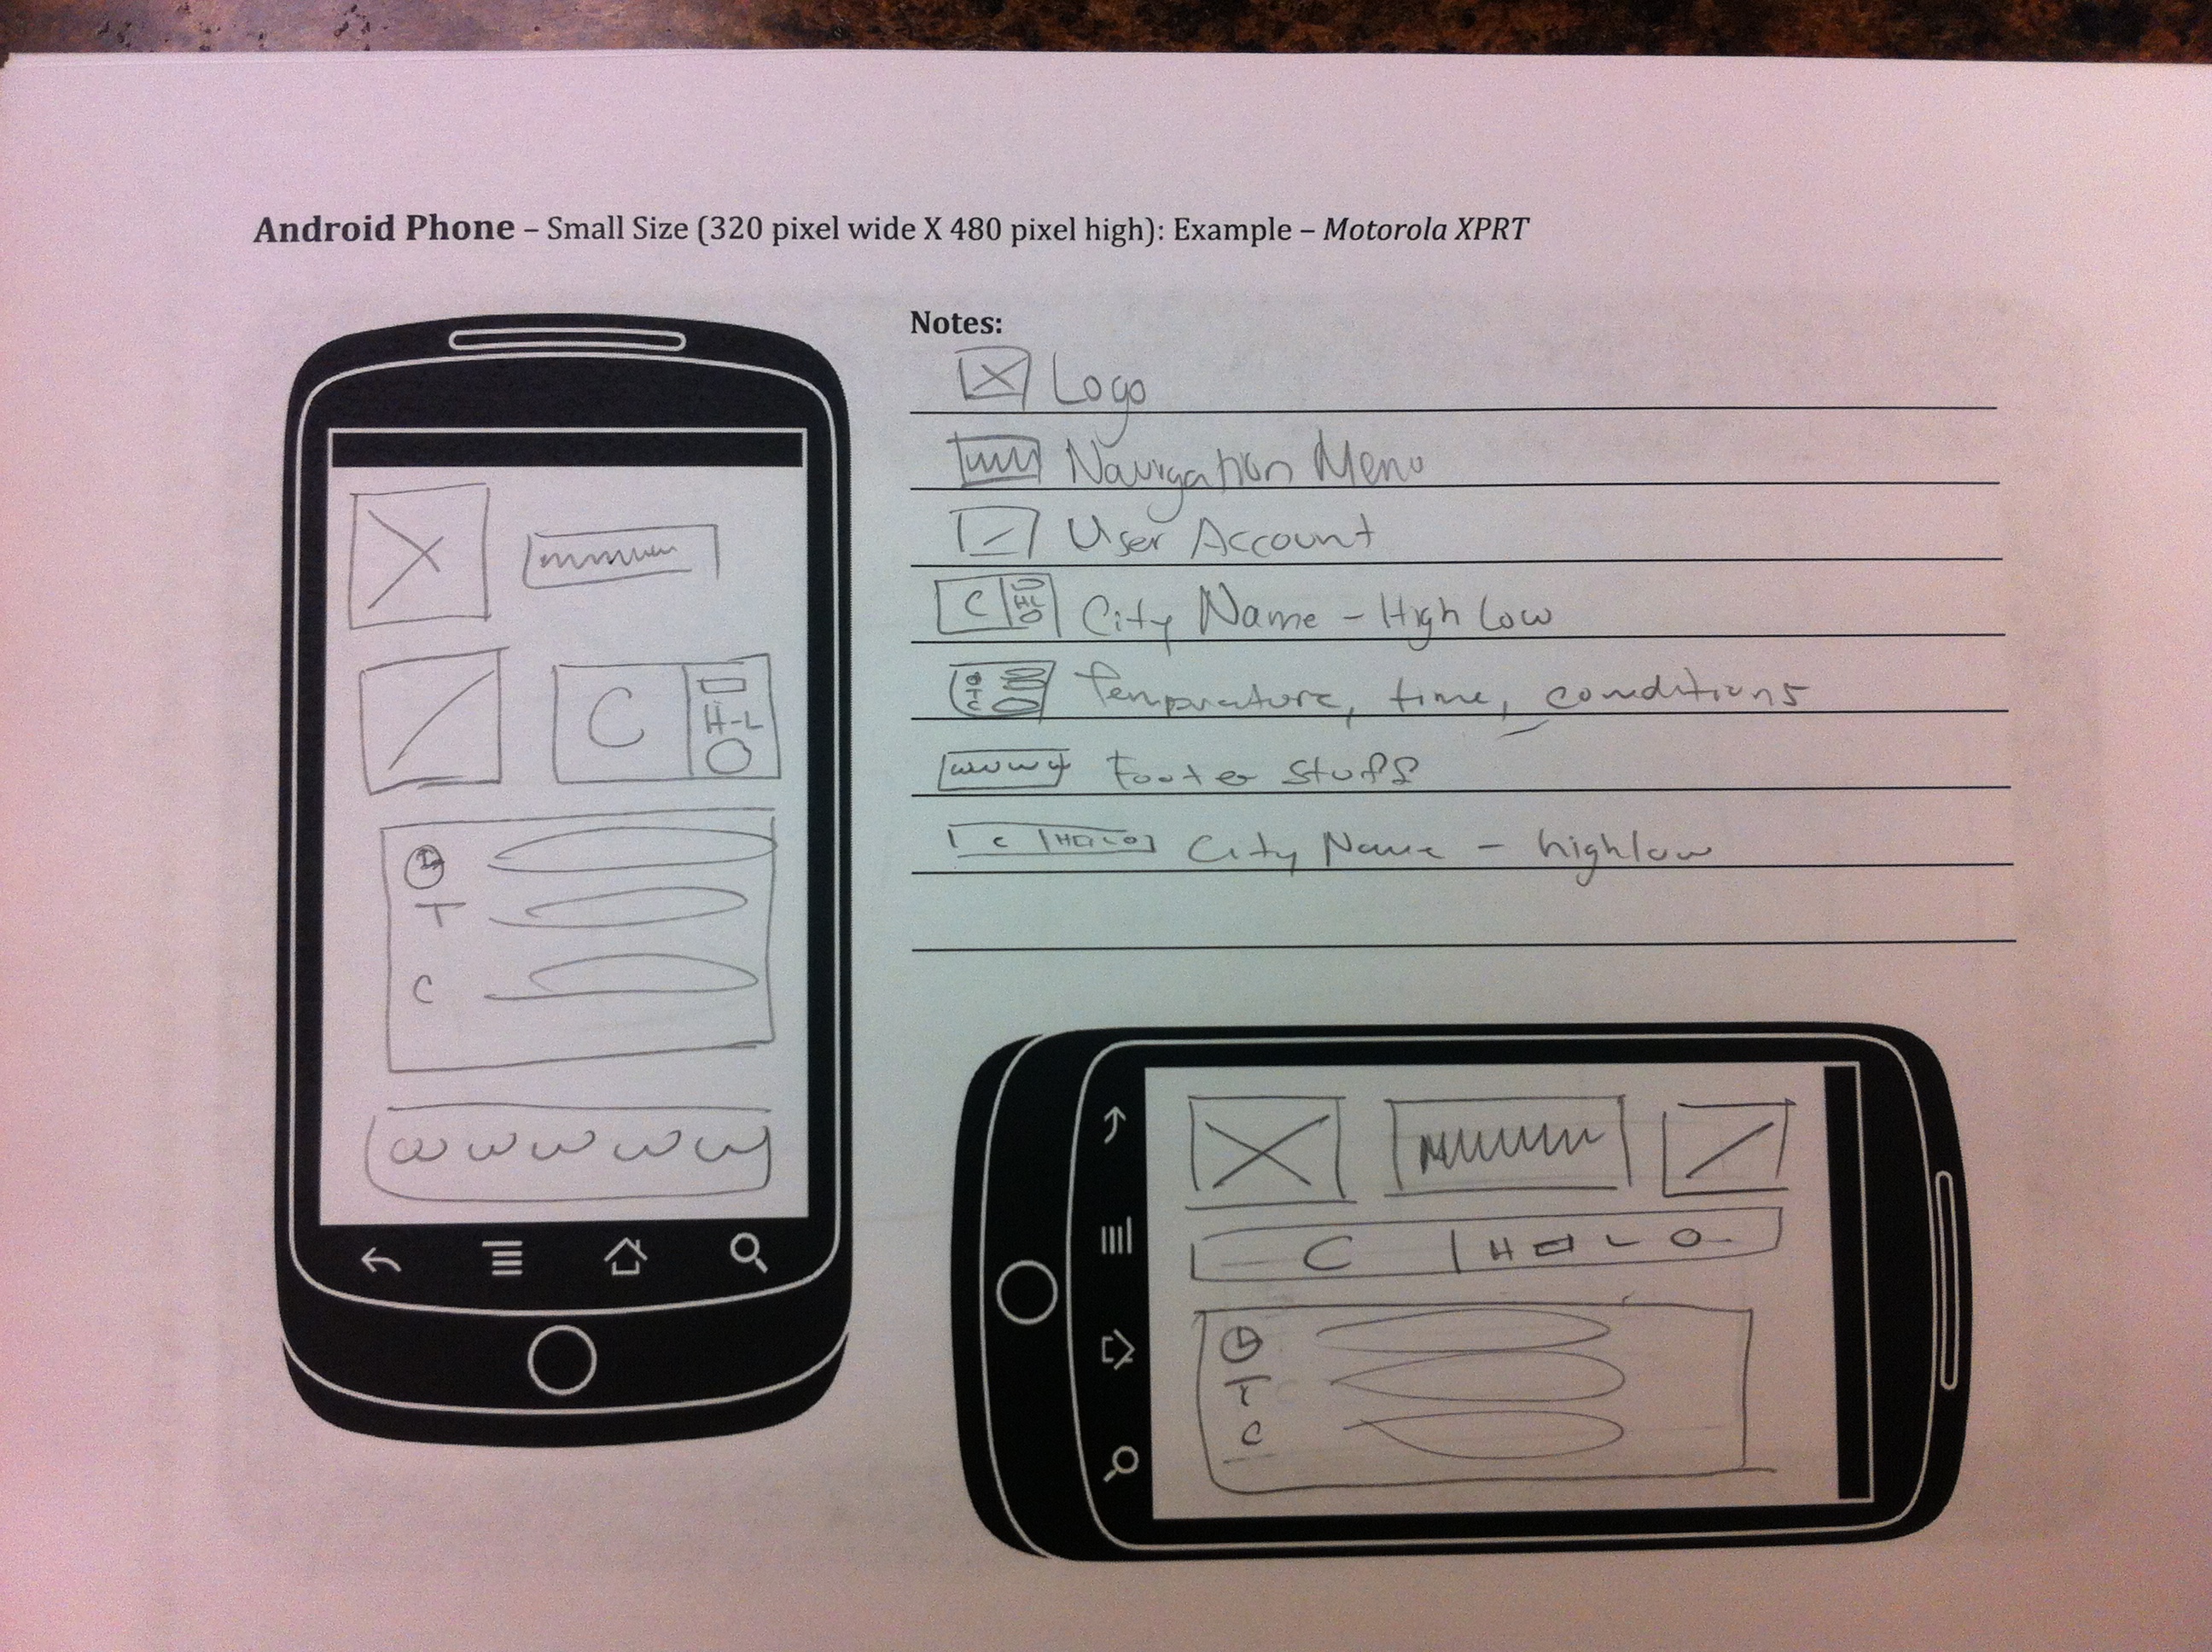 Android Phone – Small Size (320 pixel wide X 480 pixel high): Example – Motorola XPRT
Notes:
Logo
Navigation Menu
User Account
C HL City Name - High Low
C T Temperature, time, conditions
Footer Stuff
C | H L City Name - high low
C
H-L
T
C
C | H L
T
C